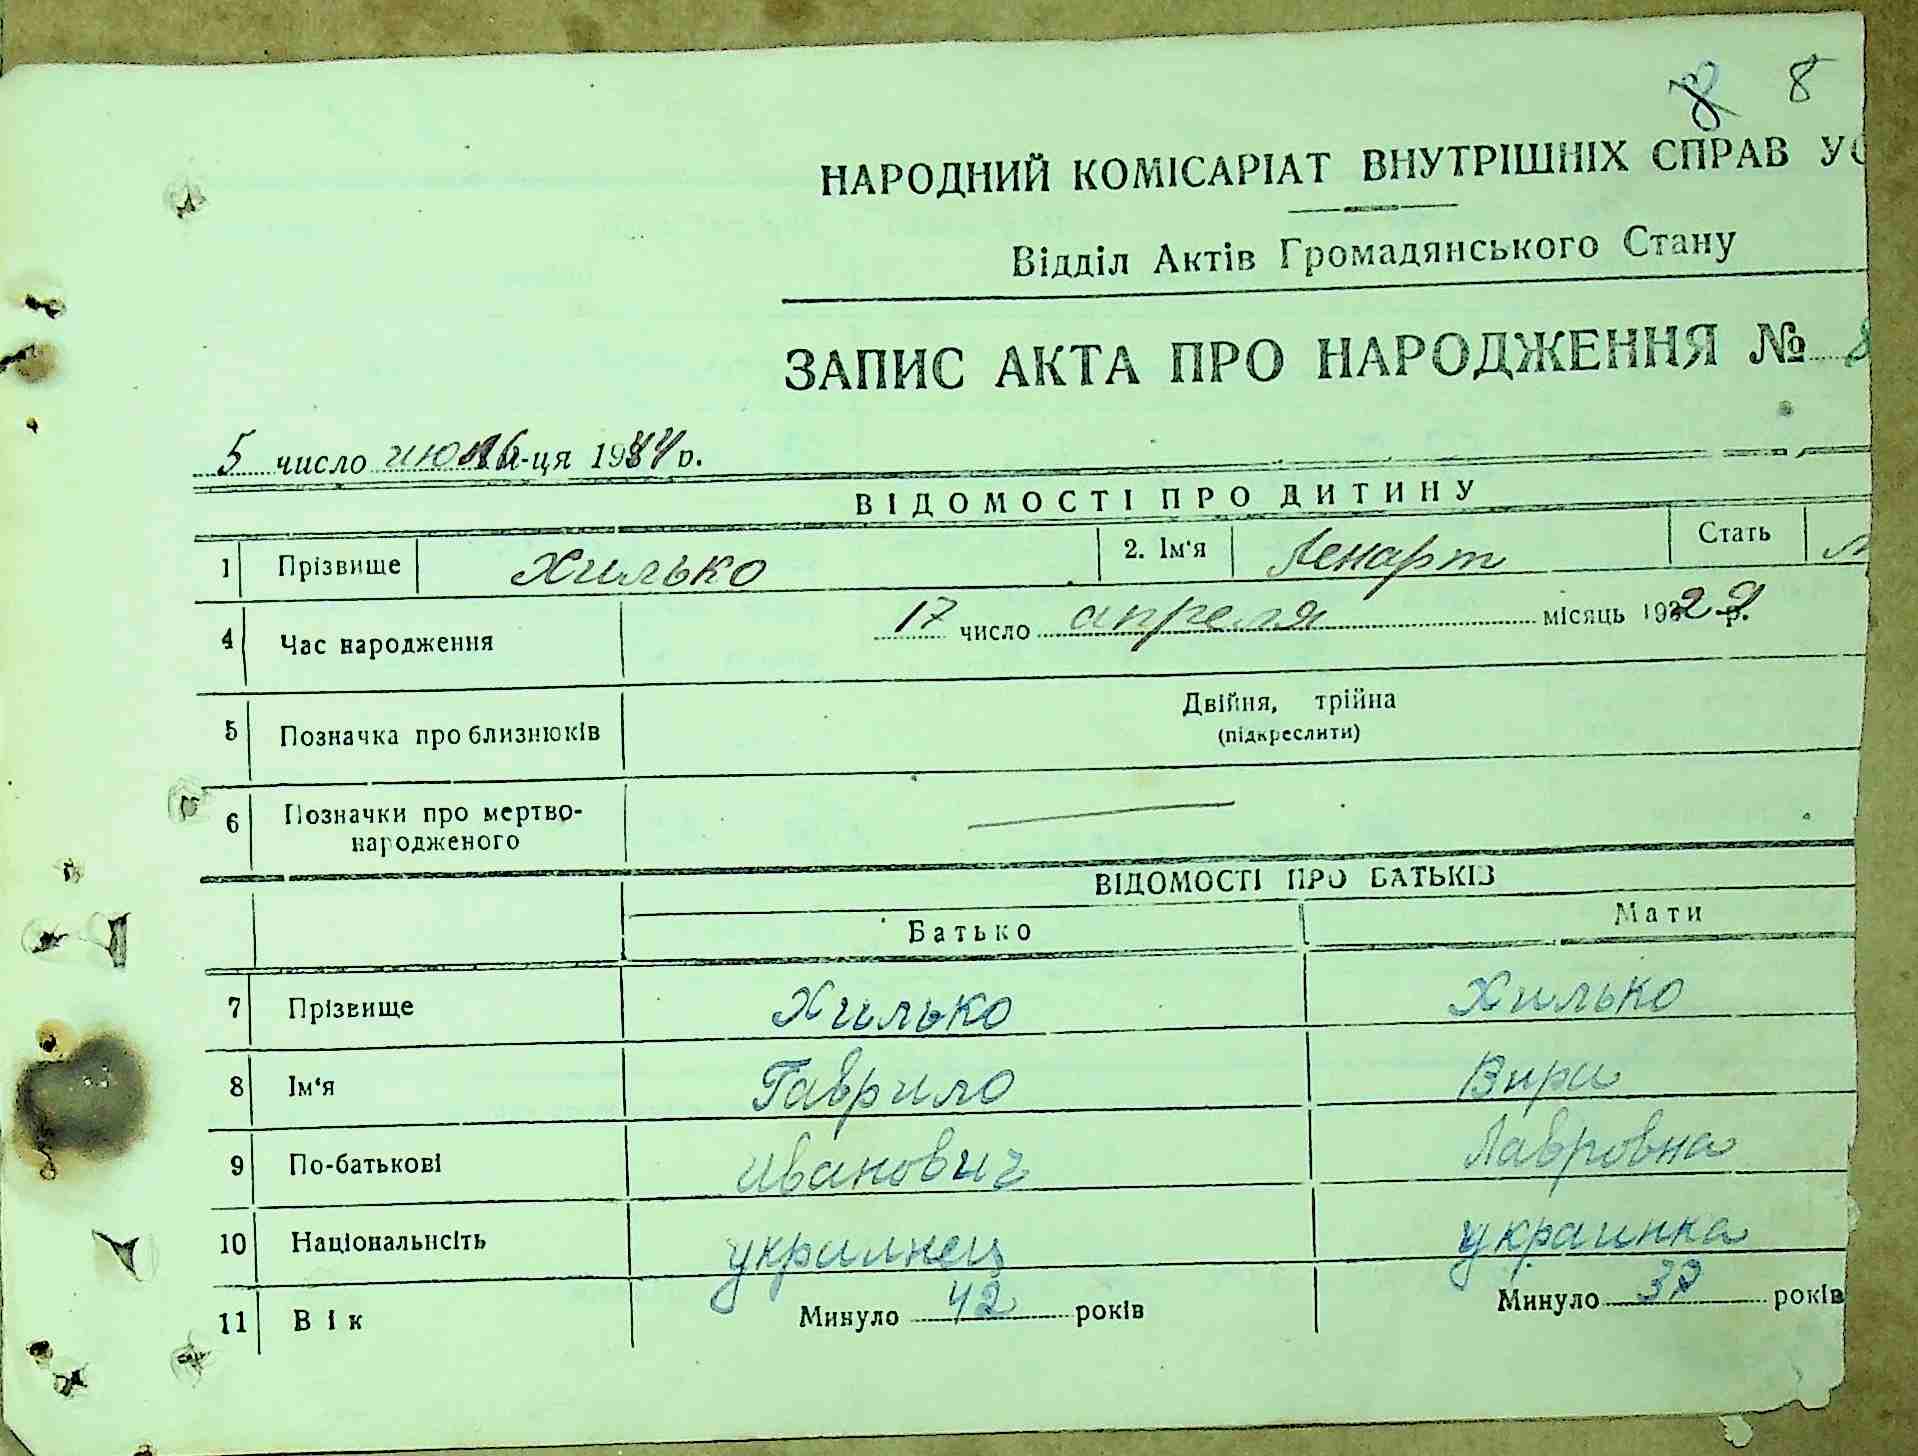 8 8
НАРОДНИЙ КОМІСАРІАТ ВНУТРІШНІХ СПРАВ УС
Відділ Актів Громадянського Стану
ЗАПИС АКТА ПРО НАРОДЖЕННЯ № 8
5 число м-ця 1944 р.
ВІДОМОСТІ ПРО ДИТИНУ
1 Прізвище Хилько 2. Ім'я Ленарт Стать м
4 Час народження 17 число апреля місяць 1929 р.
5 Позначка про близнюків Двійня, трійна
(підкреслити)
6 Позначки про мертво-
народженого
ВІДОМОСТІ ПРО БАТЬКІВ
Батько Мати
7 Прізвище Хилько Хилько
8 Ім'я Гаврило Вира
9 По-батькові Иванович Лавровна
10 Національнсіть украинец украинка
11 Вік Минуло 42 років Минуло 37 років